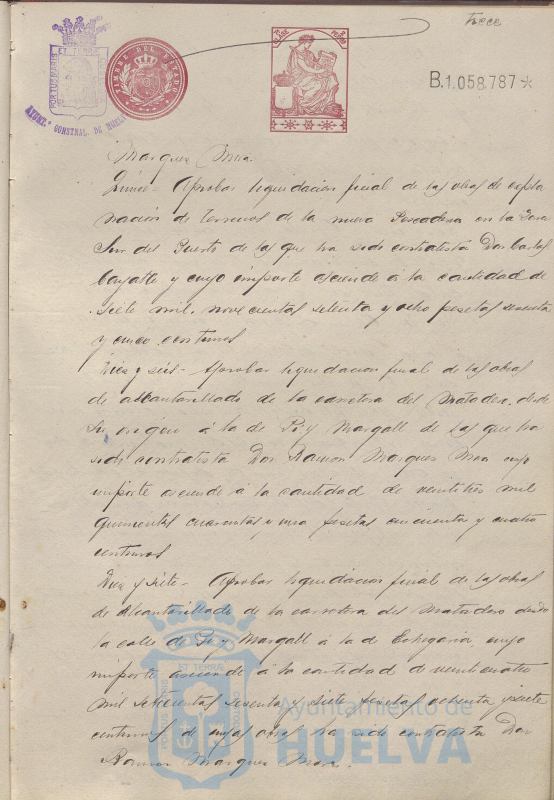 trece
PORTUS MARIS ET TERRÆ CUSTODIA
AYUNT.º CONSTNAL. DE HUELVA
TIMBRE DEL ESTADO
B.1.058.787*
Marquez Mora.
Quince - Aprobar liquidacion final de las obras de expla
nacion de terrenos de la nueva Pescaderia en la Zona
Sur del Puerto de las que ha sido contratista Don Carlos
y cuyo importe asciende á la cantidad de
siete mil novecientas setenta y ocho pesetas sesenta
y cinco centimos
Diez y seis - Aprobar liquidacion final de las obras
de alcantarillado de la carretera del Matadero, desde
su origen á la de Pi y Margall de las que ha
sido contratista Don Ramon Marquez Mora cuyo
importe asciende á la cantidad de veintitres mil
quinientas cuarenta y una pesetas cincuenta y cuatro
centimos
Diez y siete - Aprobar liquidacion final de las obras
de alcantarillado de la carretera del Matadero desde
la calle de Pi y Margall á la de Echegaria cuyo
importe asciende á la cantidad de veinticuatro
mil setecientas sesenta y siete pesetas ochenta y siete
centimos, de cuyas obras ha sido contratista Don
Ramon Marquez Mora.
Ayuntamiento de
HUELVA